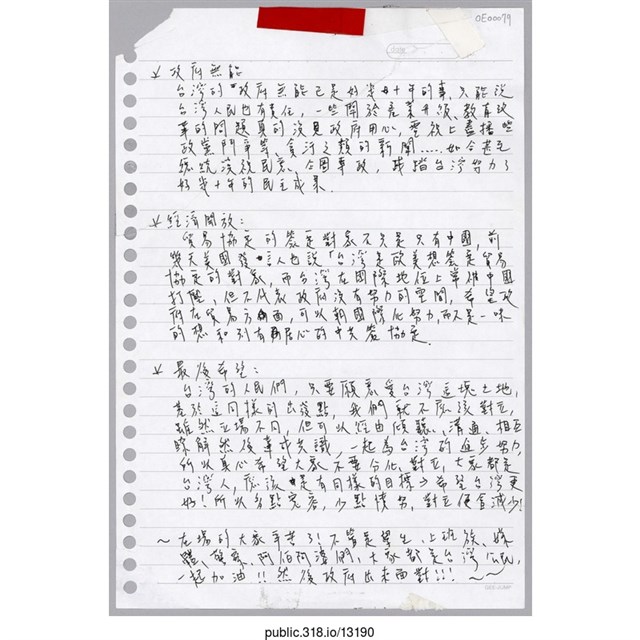 OE00079
date
↙政府無能
台灣的"政府無能"已是好幾十年的事, 只能說
台灣人民也有責任, 一些關於產業升級、教育改
革的問題真的沒見政府用心, 電視上盡播些
政黨鬥爭、貪污之類的新聞..... 如今甚至
總統漠視民意、企圖專政, 踐踏台灣努力了
好幾十年的民主成果.
↙經濟開放:
貿易協定的簽定對象不是只有中國, 前
幾天美國發言人也說「台灣是歐美想簽定貿易
協定的對象, 而台灣在國際地位上常被中國
打壓, 但不代表政府沒有努力的空間, 希望政
府在貿易方面, 可以朝國際化努力, 而不是一味
的想和別有居心的中共簽協定.
↙最後希望:
台灣的人民們, 只要願意愛台灣這塊土地,
基於這同樣的出發點, 我們就不應該對立,
雖然立場不同, 但可以經由傾聽、溝通、相互
瞭解然後達成共識, 一起為台灣的進步努力,
所以真心希望大家不要分化、對立, 大家都是
台灣人, 應該是有同樣的目標→希望台灣更
好! 所以多點寬容, 少點憤怒, 對立便會減少!
~在場的大家辛苦了! 不管是學生、上班族、媒
體、警察、阿伯阿婆們, 大家都是台灣公民,
一起加油!! 然後政府出來面對!!!~~
public.318.io/13190